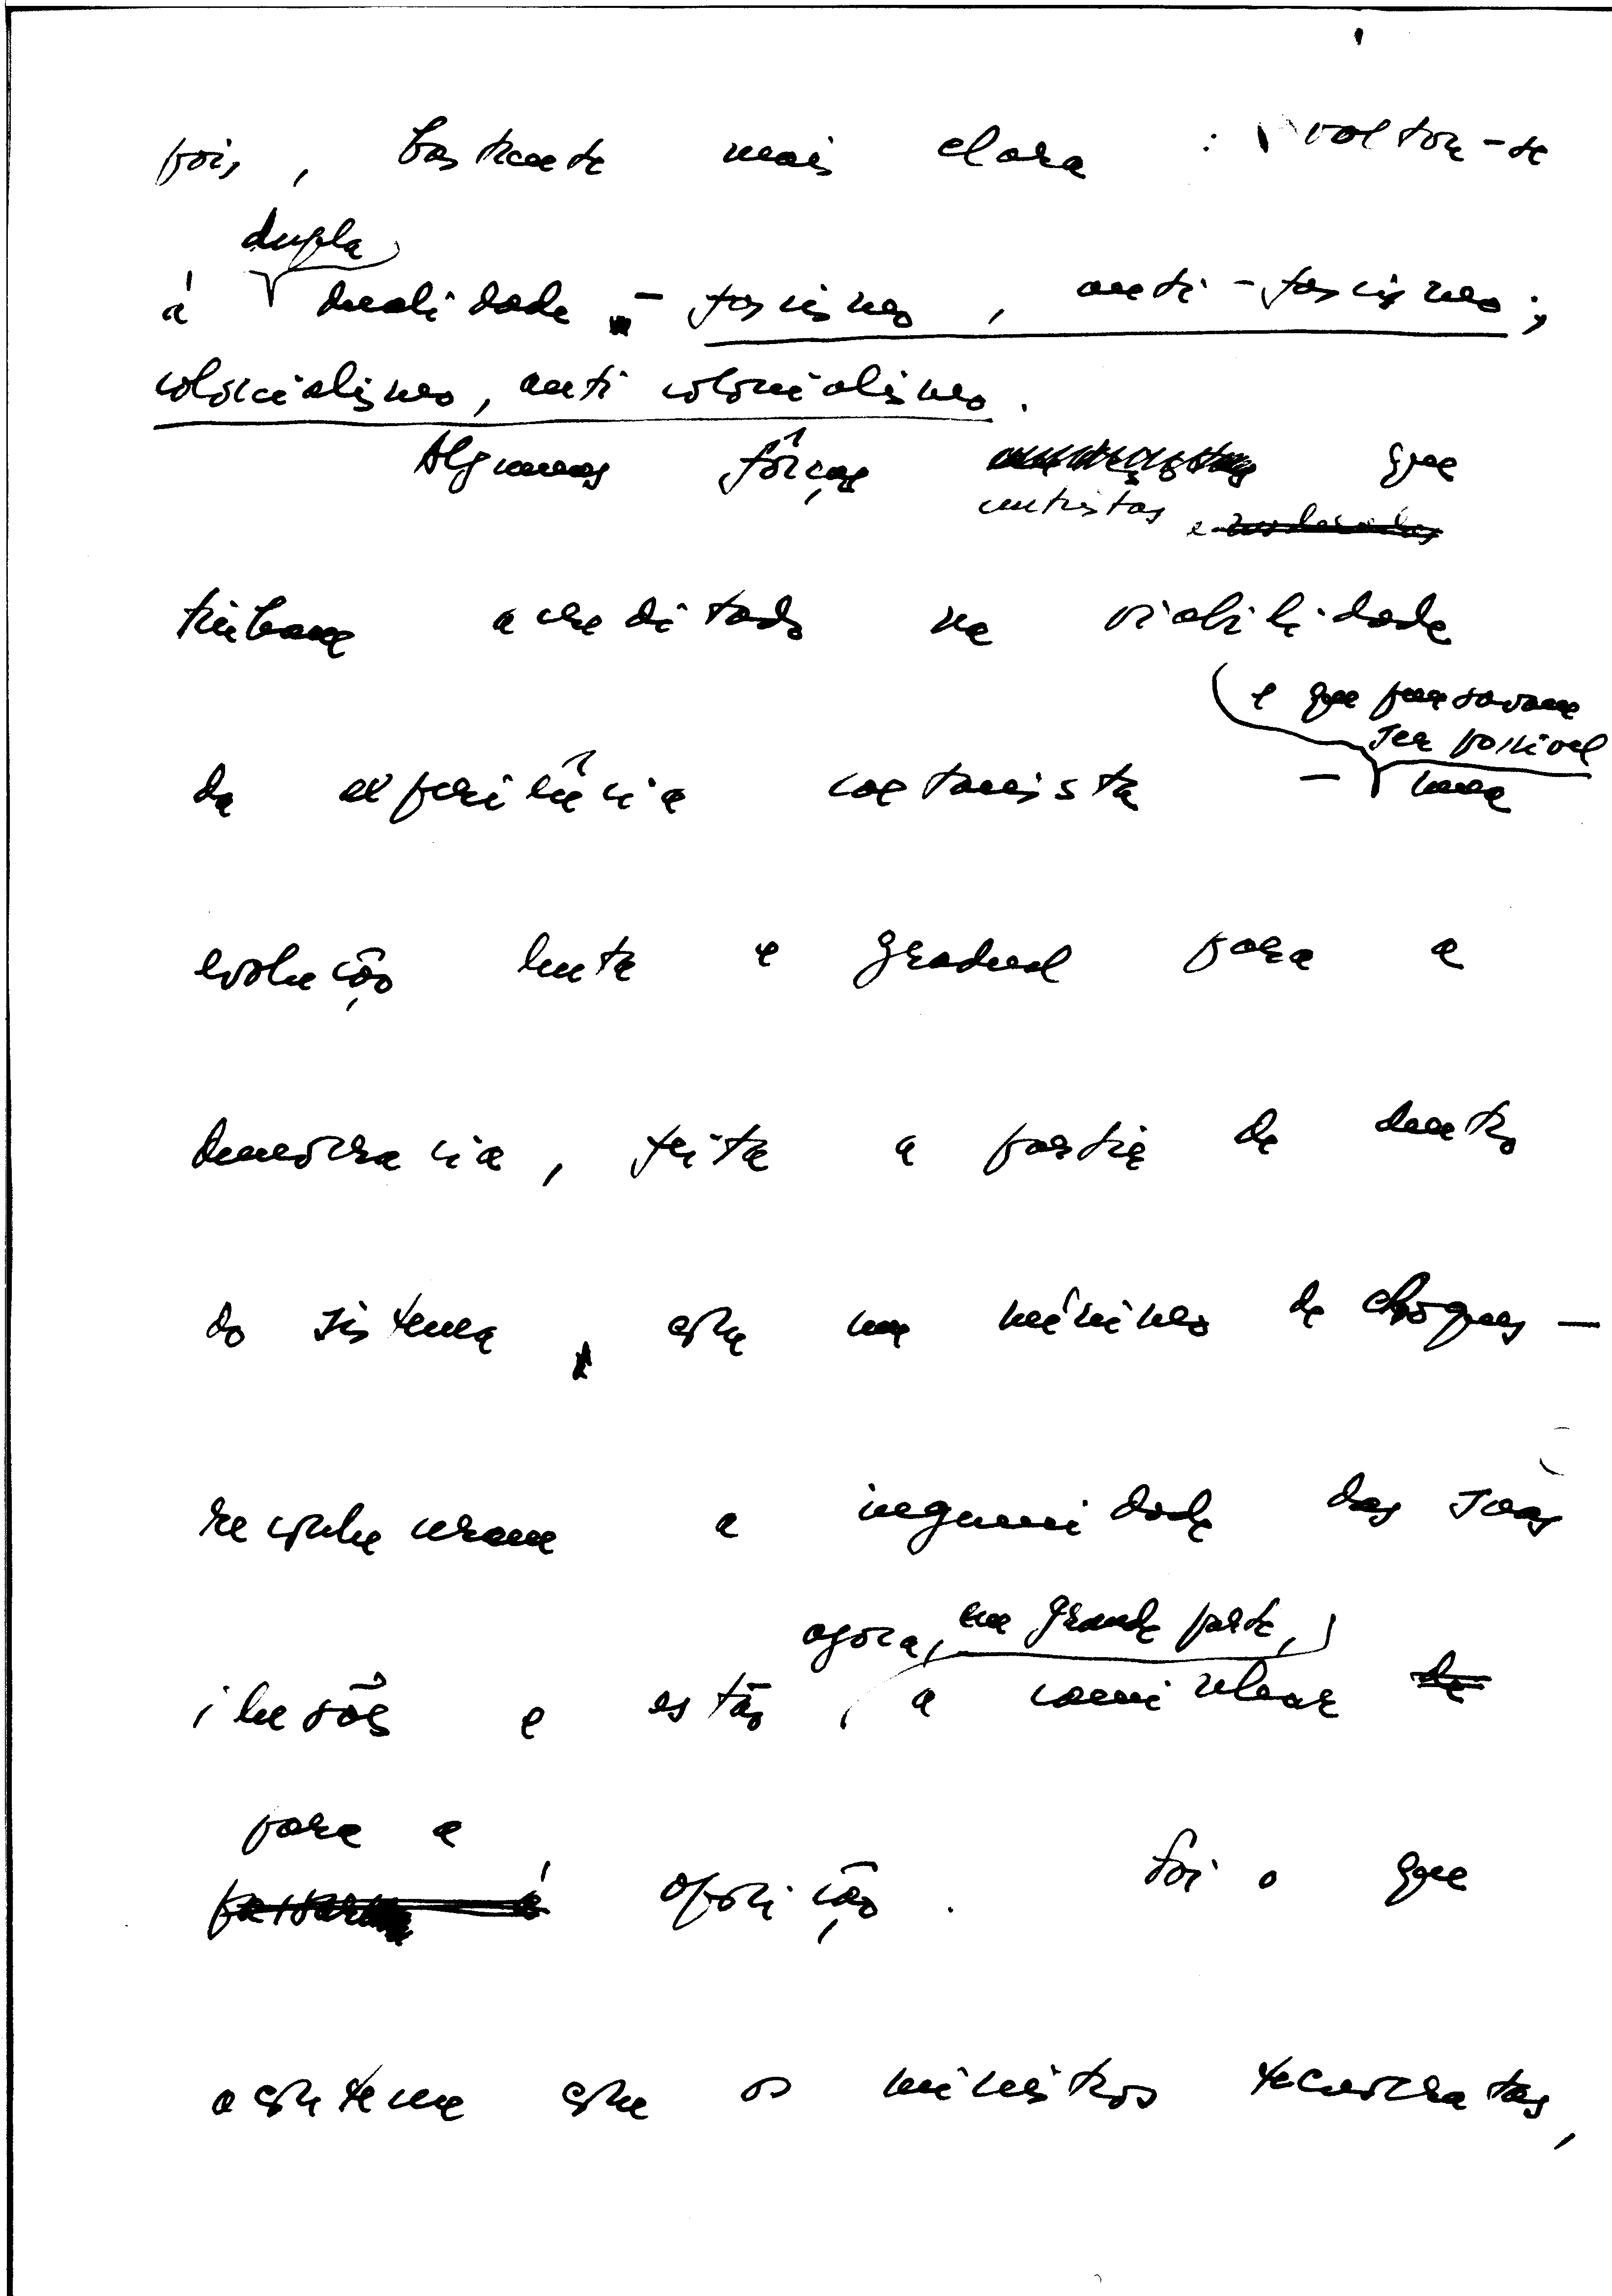 pois, bastante mais clara : voltou-se
dupla
á dualidade - fascismo, anti-fascismo;
colonialismo, anti colonialismo.
Algumas fôrças que
centristas e moderadas
tinham acreditado na viabilidade
e que pensavam
ser possível
da experiência caetanista - uma
evolução lenta e gradual para a
democracia, feita a partir de dentro
do sistema, com um mínimo de choques -
reconheceram a ingenuidade das suas
agora, em grande parte,
ilusões e estão, a caminhar de
para a
passaram á oposição. Foi o que
aconteceu com os ministros tecnocratas,